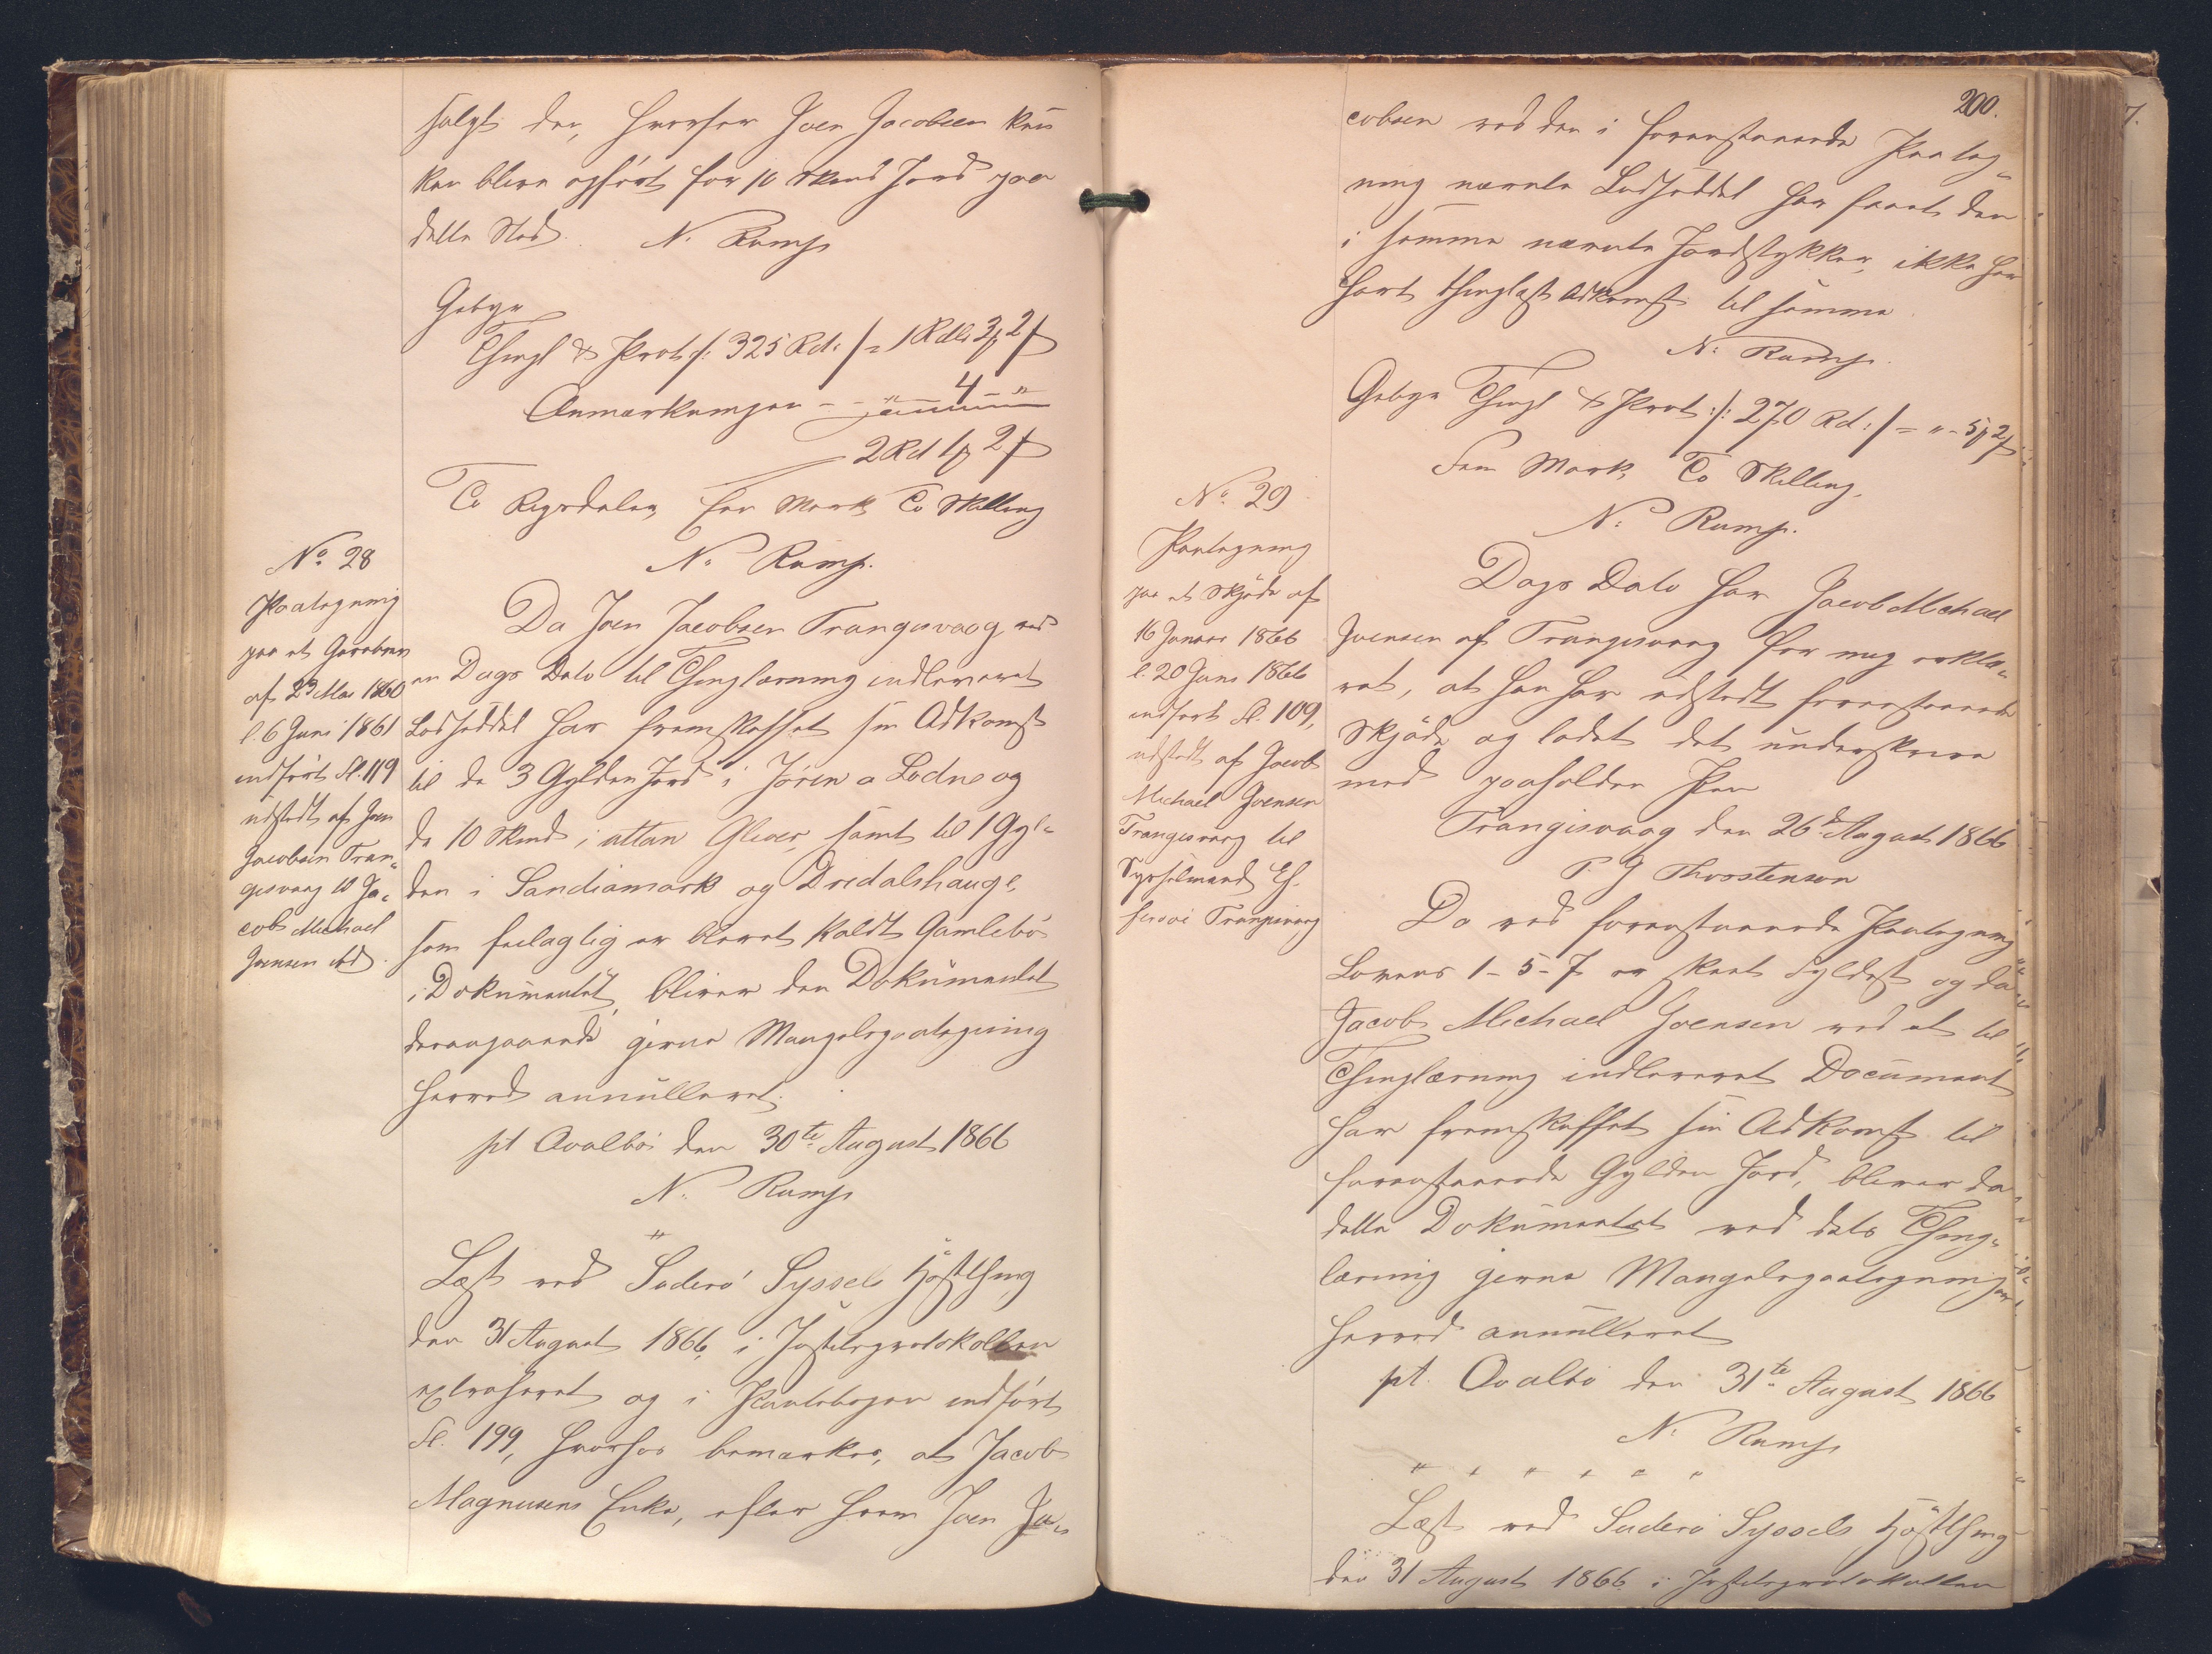 solgt den, hvorfor Joen Jacobsen kun
kan blive opført for 10 Skind Jord paa
dette Sted. N. Rump
Gebyr
Thingl & Prot /: 325 Rd: / = 1 Rdlr 3 ₰ 2 ß
Anmærkningen - - " 4 "
2 Rd 1 ₰ 2 ß
To Rigsdaler, een Mark To Skilling
N. Rump.
No 28
Paategning
paa et Gavebrev
af 23 Mai 1860
l. 6 Juni 1861
indført Fl. 119
udstedt af Joen
Jacobsen Tran-
gisvaag til Ja-
cob Michael
Joensen ibd.
Da Joen Jacobsen Trangisvaag ved
en Dags Dato til Thinglæsning indleveret
Lodseddel har fremskaffet sin Adkomst
til de 3 Gylden Jord i Jøren a Lodne og
de 10 Skind i attan Gliver, samt til 1 Gyl-
den i Sandiamark og Dredalshauge,
som feilaglig er blevet kaldt Gamlebø
i Dokumentet, bliver den Dokumentet
derangaaende givne Mangelspaategning
herved annulleret.
pt Qvalbø den 30te August 1866
N. Rump
"
Læst ved Suderø Syssels Høstthing
den 31 August 1866, i Justitsprotokollen
extraheret og i Pantebogen indført
Fl. 199, hvorhos bemærkes, at Jacob
Magnusens Enke, efter hvem Joen Ja-
200.
cobsen ved den i foranstaaende Paateg-
ning nævnte Lodseddel har faaet den
i samme nævnte Jordstykker, ikke har
havt thinglæst Adkomst til samme.
N. Rump.
Gebyr Thingl & Prot: /: 270 Rd: / = " - 5 ₰ 2 ß
Fem Mark, To Skilling.
N. Rump.
No. 29
Paategning
paa et Skjøde af
16 Januar 1866
l. 20 Juni 1866
indført Fl. 109,
udstedt af Jacob
Michael Joensen
Trangisvaag til
Sysselmand Ef-
fersøe Trangisvaag
Dags Dato har Jacob Michael
Joensen af Trangisvaag for mig erklæ-
ret, at han har udstedt foranstaaende
Skjøde og ladet det underskrive
med paaholden Pen
Trangisvaag den 26de August 1866
P. J Thorstenson
Da ved foranstaaende Paategning
Lovens 1-5-7 er skeet Fyldest og da
Jacob Michael Joensen ved et til
Thinglæsning indleveret Document
har fremskaffet sin Adkomst til
foranstaaende Gylden Jord, bliver de
dette Dokumentet ved dets Thing-
læsning givne Mangelspaategninger
herved annulleret
pt. Qvalbø den 31te August 1866
N. Rump
" " " " " "
Læst ved Suderø Syssels Høstthing
den 31 August 1866 i Justitsprotokollen
7.